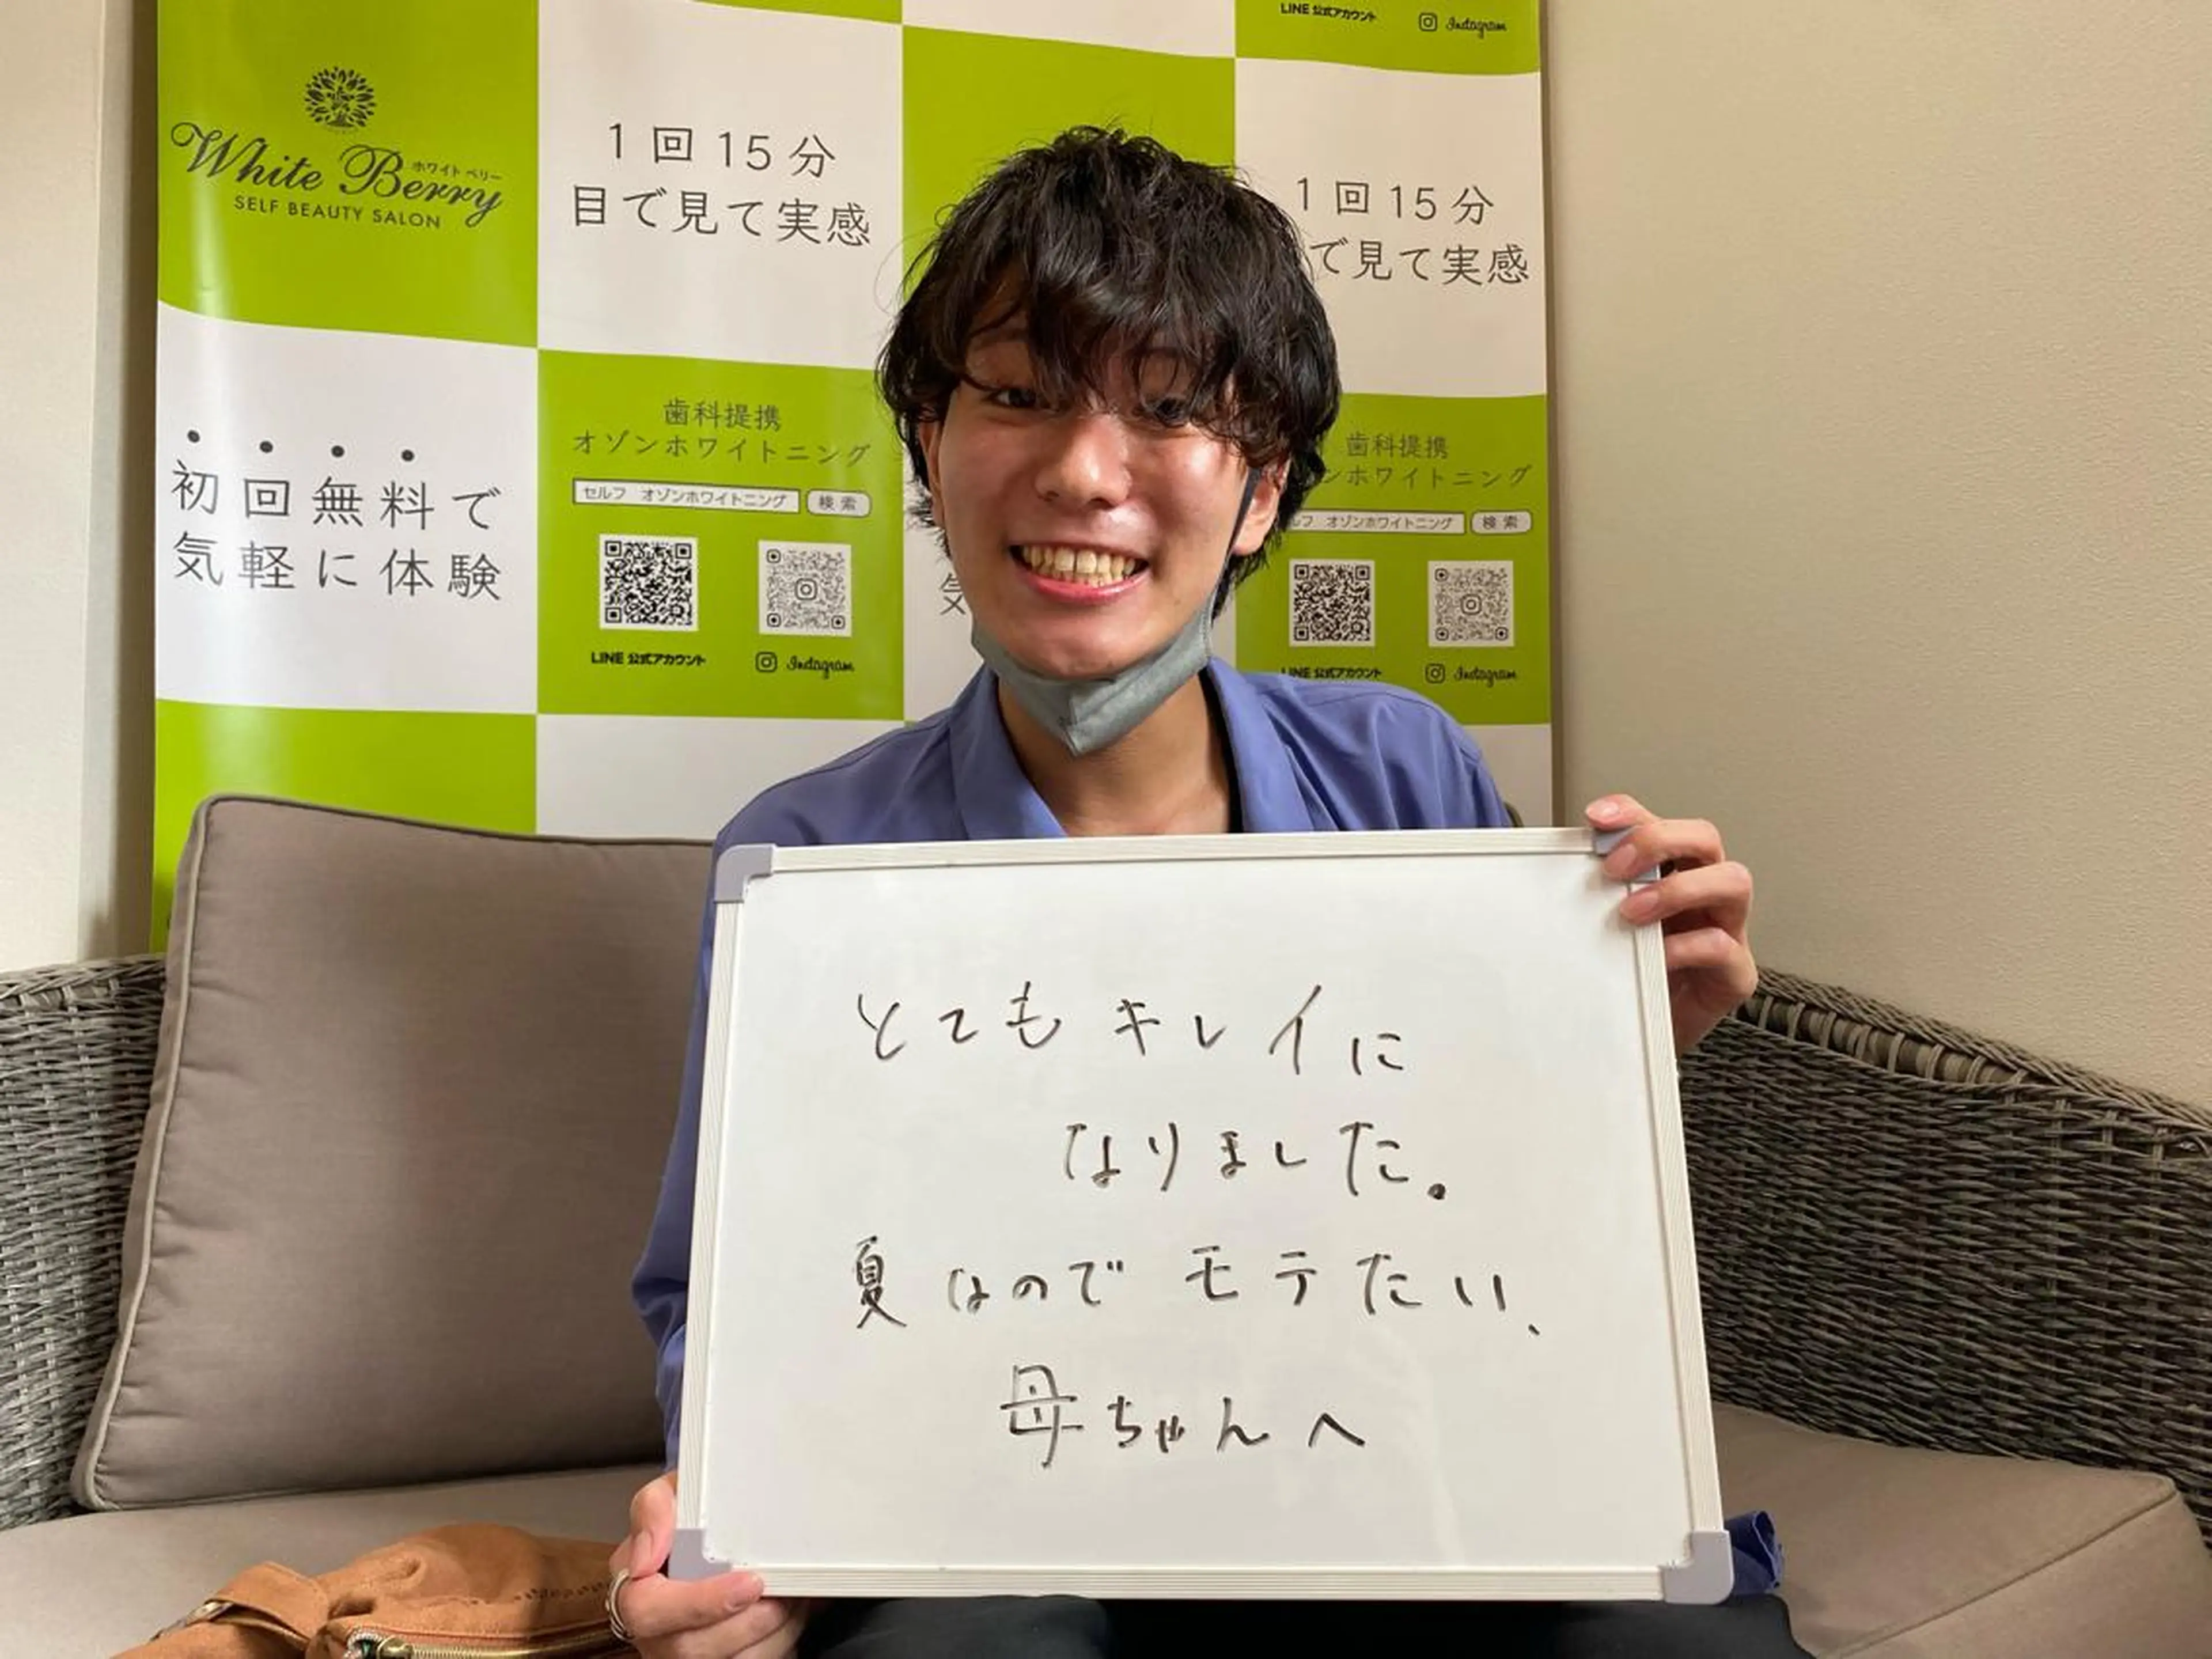 LINE 公式アカウント
Instagram
White Berry
ホワイト ベリー
SELF BEAUTY SALON
1回15分
目で見て実感
1回15分
で見て実感
初回無料で
気軽に体験
歯科提携
オゾンホワイトニング
セルフ オゾンホワイトニング 検索
LINE 公式アカウント
Instagram
気
歯科提携
ンホワイトニング
ルフ オゾンホワイトニング 検索
LINE 公式アカウント
Instagram
とてもキレイに
なりました。
夏なのでモテたい、
母ちゃんへ